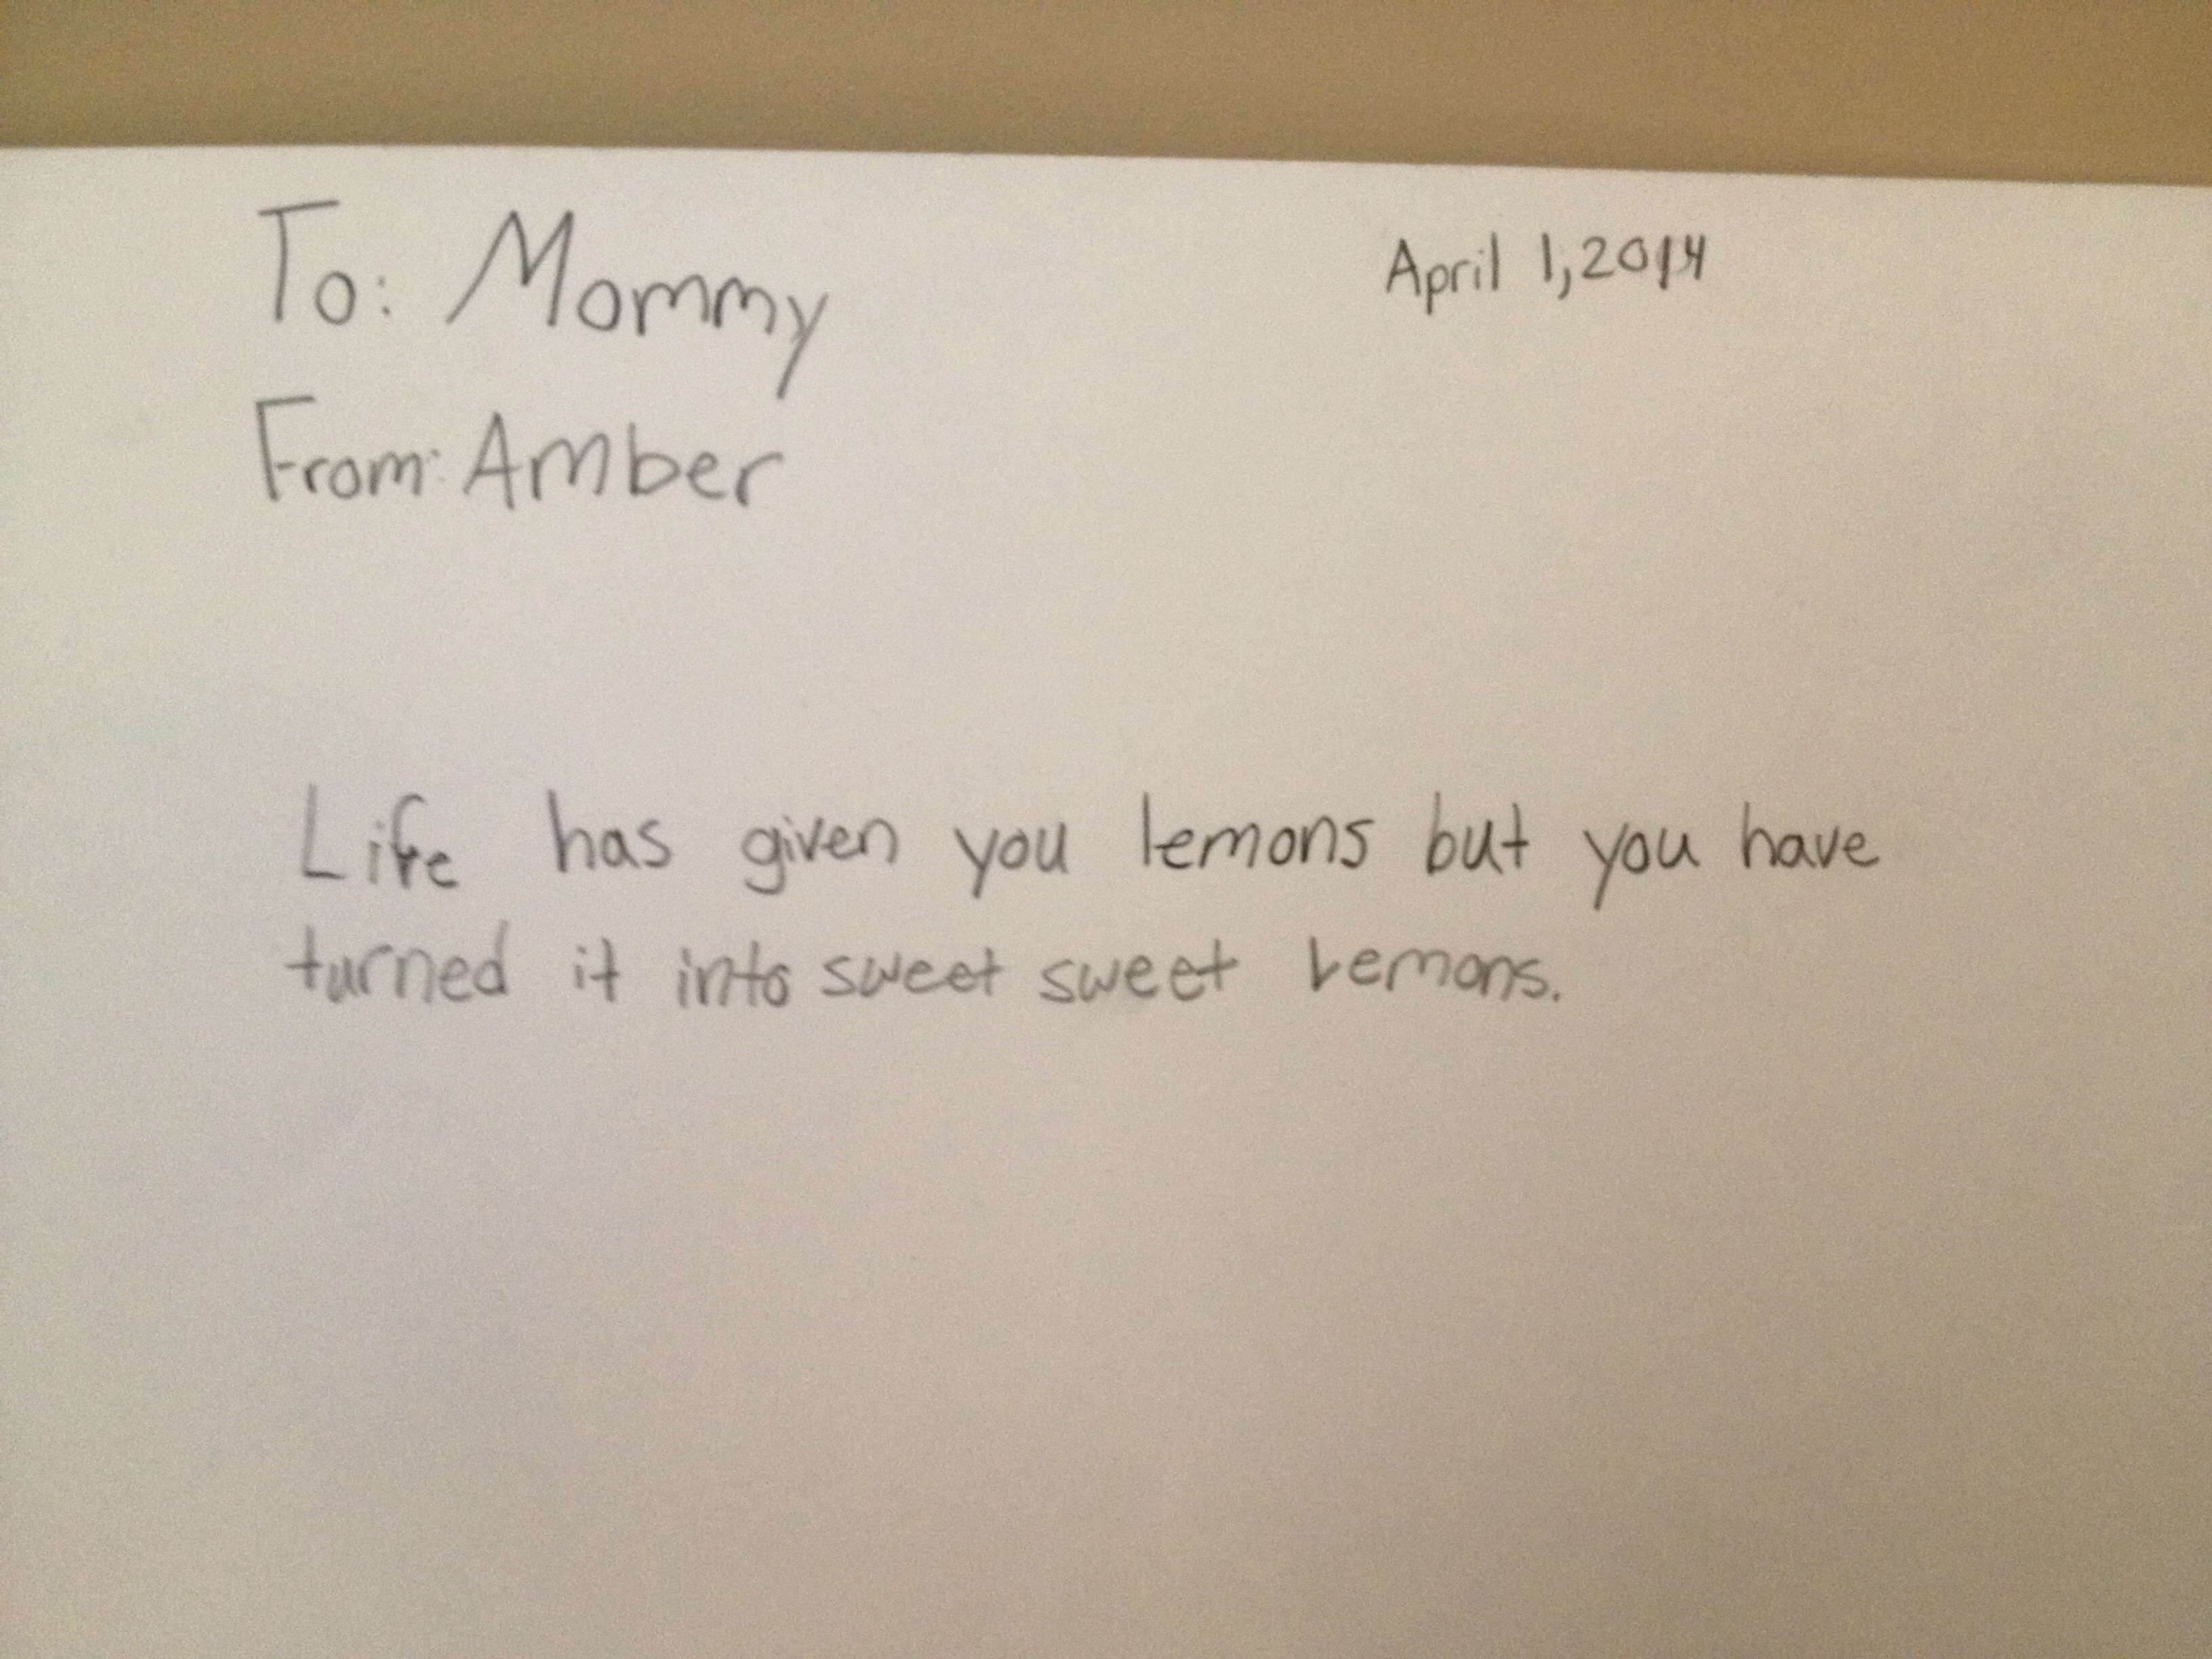 To: Mommy
April 1, 2014
From: Amber
Life has given you lemons but you have
turned it into sweet sweet Lemons.